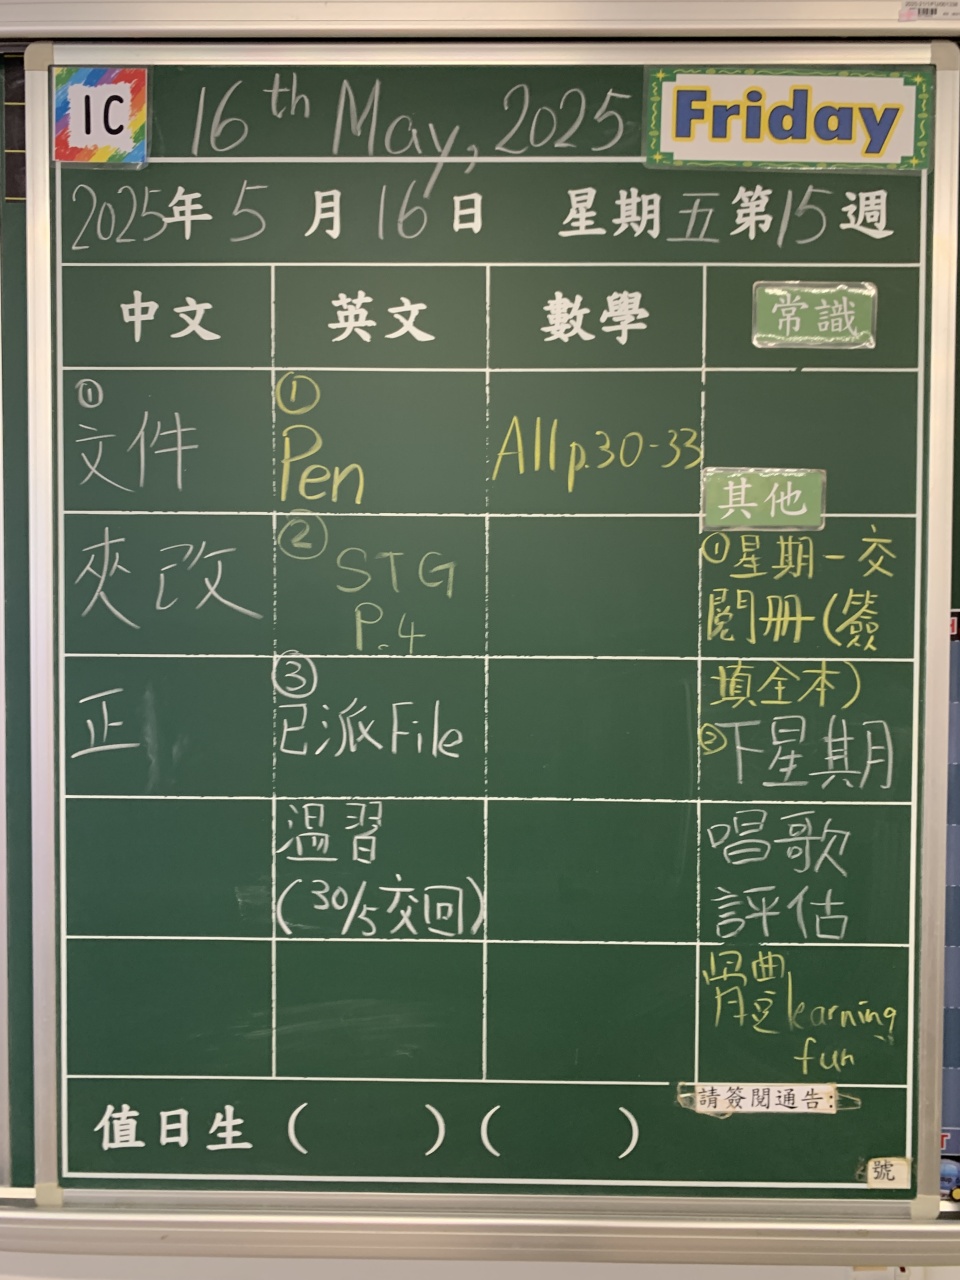 1C
16th May, 2025
Friday
2025年5月16日 星期五第15週
中文 英文 數學 常識
①
文件
夾改
正
①
Pen
②
STG
P.4
③
已派File
溫習
(30/5交回)
All p.30-33
其他
①星期一交
閱冊(簽
填全本)
②下星期
唱歌
評估
體learning
fun
請簽閱通告:
號
值日生 ( ) ( )